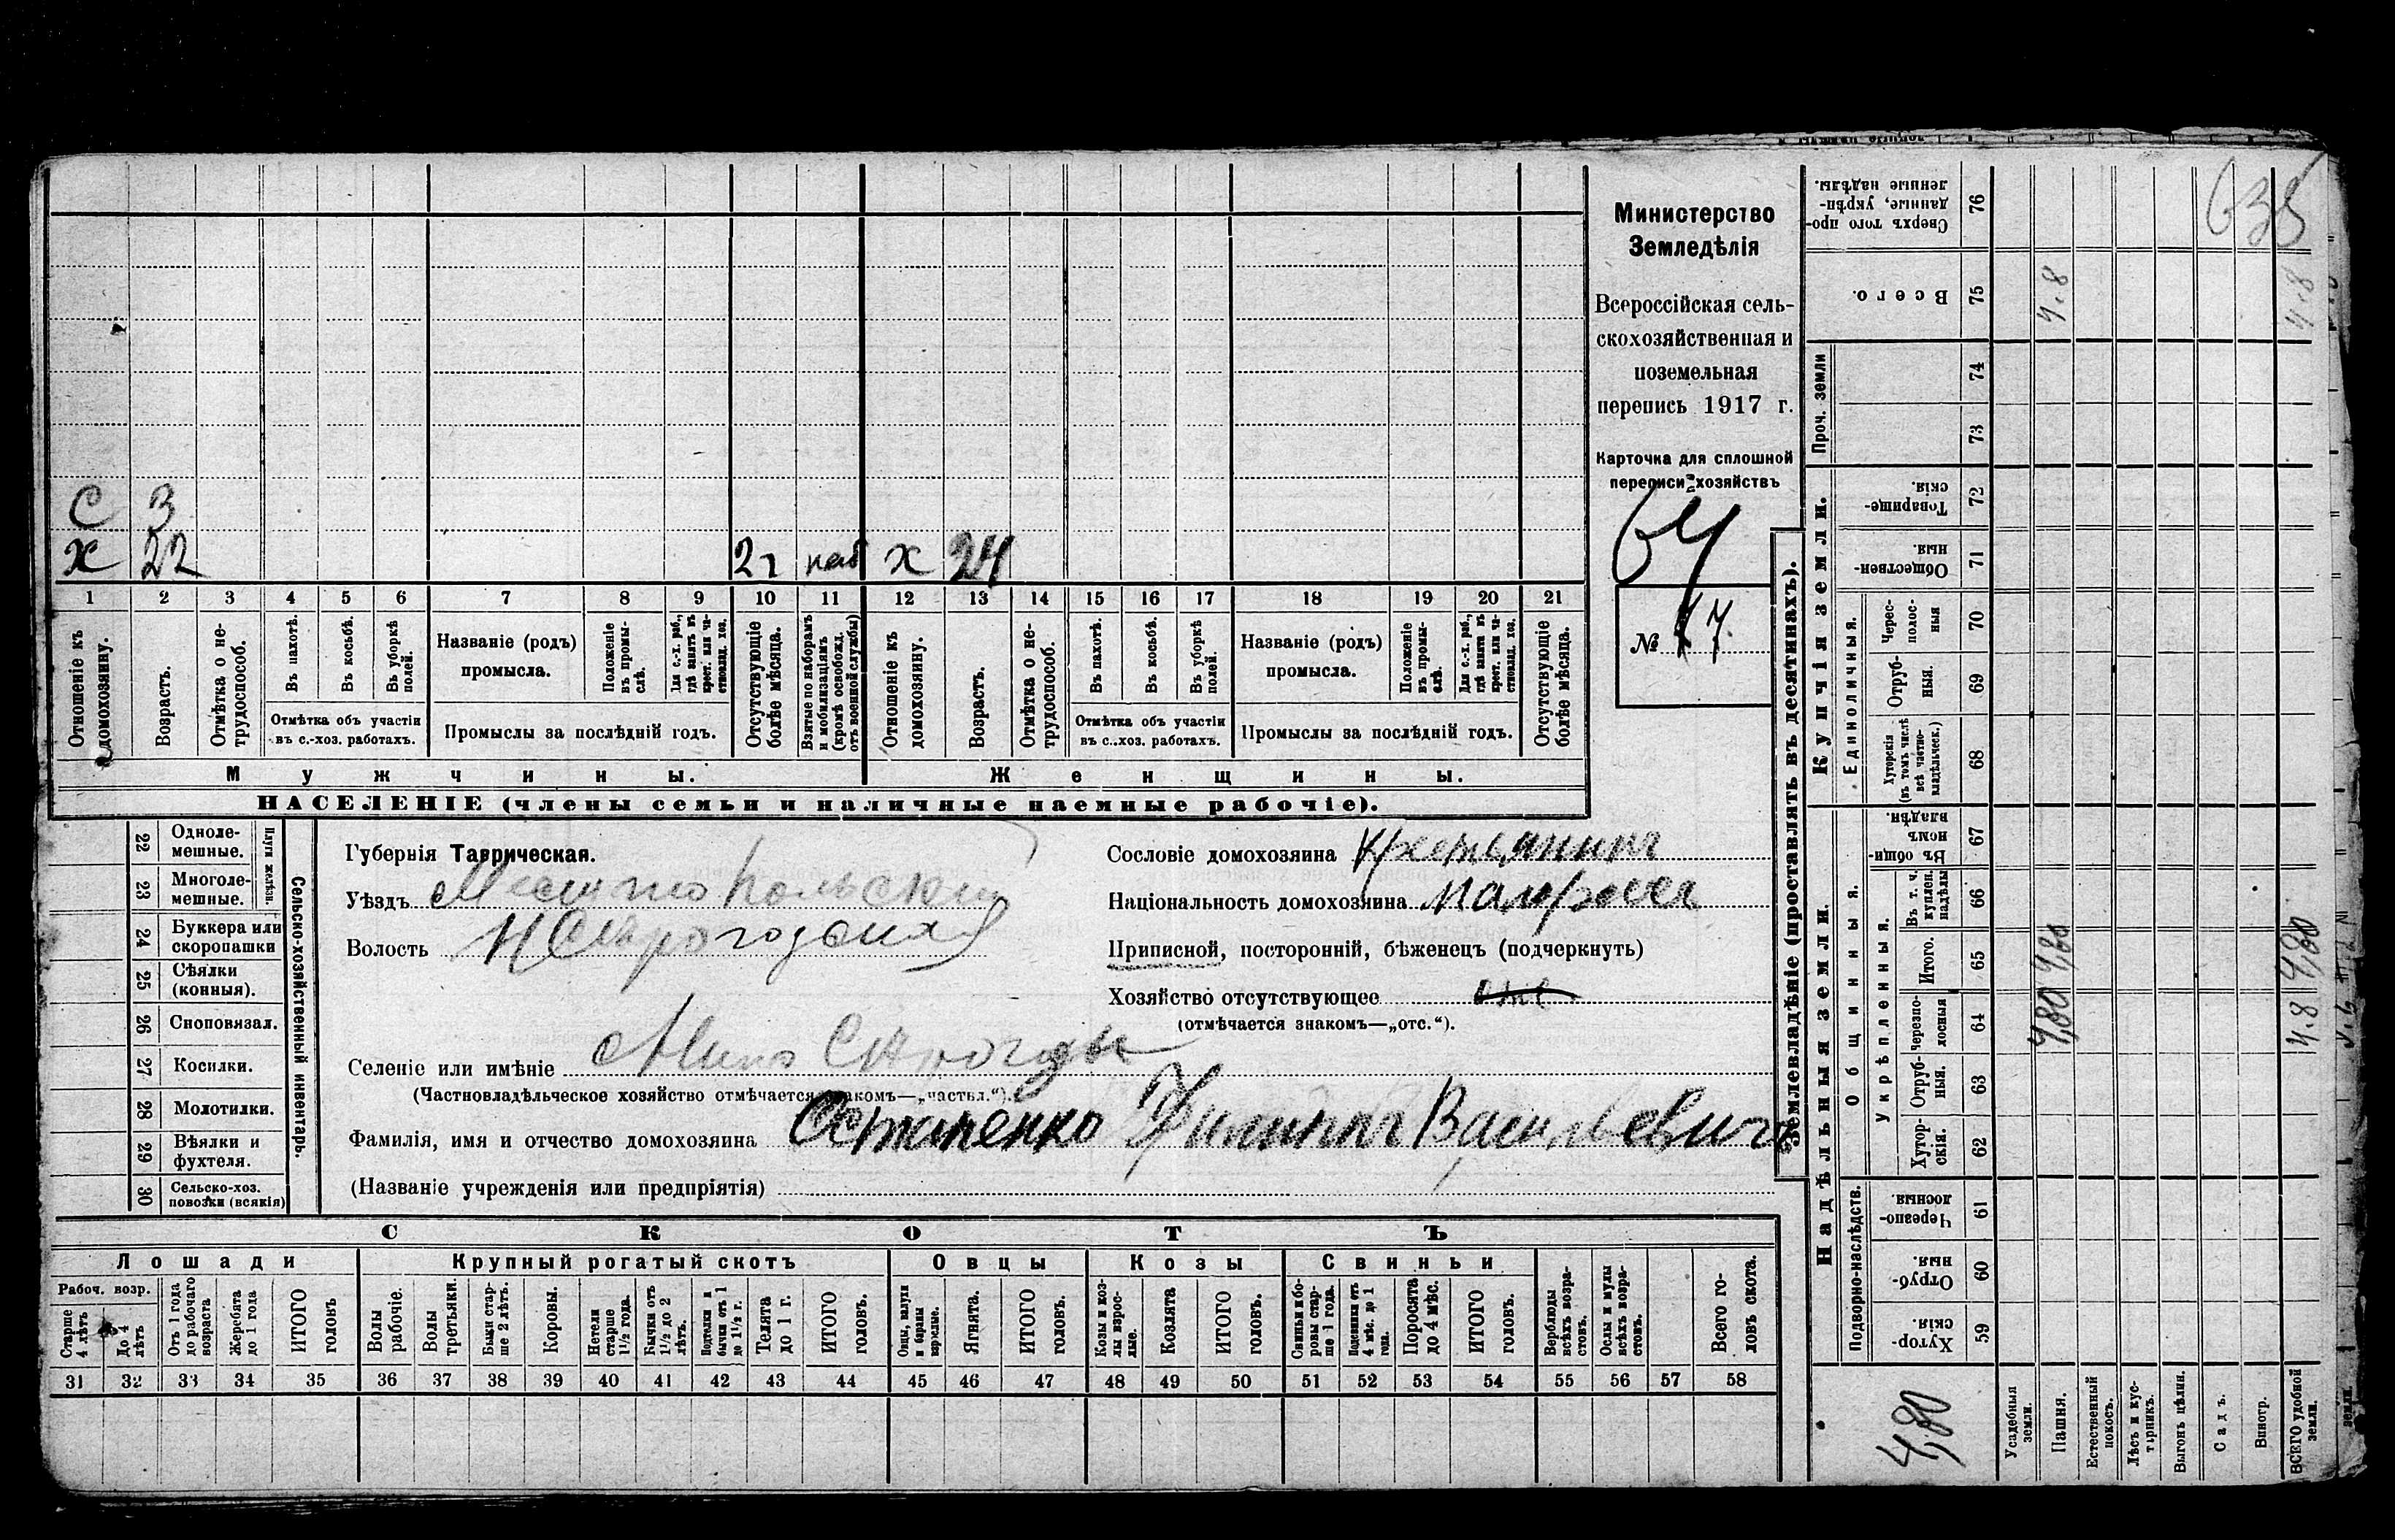 С 3
х 22 2г наб х 24
1 2 3 4 5 6 7 8 9 10 11 12 13 14 15 16 17 18 19 20 21
Отношеніе къ домохозяину.
Возрастъ.
Отмѣтка о не-трудоспособ.
Въ пахотѣ.
Въ косьбѣ.
Въ уборкѣ полей.
Отмѣтка объ участіи
въ с.-хоз. работахъ.
Названіе (родъ)
промысла.
Положеніе въ промы-слѣ.
Для с.-х. раб., гдѣ занятъ въ крест. или ча-стновлад. хоз.
Промыслы за послѣдній годъ.
Отсутствующіе болѣе мѣсяца.
Взятые по наборамъ и мобилизаціямъ (кромѣ освобожд. отъ военной службы)
Отношеніе къ домохозяину.
Возрастъ.
Отмѣтка о не-трудоспособ.
Въ пахотѣ.
Въ косьбѣ.
Въ уборкѣ полей.
Отмѣтка объ участіи
въ с.-хоз. работахъ.
Названіе (родъ)
промысла.
Положеніе въ промы-слѣ.
Для с.-х. раб., гдѣ занята въ крест. или ча-стновлад. хоз.
Промыслы за послѣдній годъ.
Отсутствующіе болѣе мѣсяца.
Мужчины. Женщины.
НАСЕЛЕНІЕ (члены семьи и наличные наемные рабочіе).
Министерство
Земледѣлія
Всероссійская сель-
скохозяйственная и
поземельная
перепись 1917 г.
Карточка для сплошной
переписи хозяйствъ
64
№
22 Одноле-мешные.
23 Многоле-мешные.
Плуги желѣзн.
24 Буккера или скоропашки
25 Сѣялки (конныя).
26 Сноповязал.
27 Косилки.
28 Молотилки.
29 Вѣялки и фухтеля.
30 Сельско-хоз. повозки (всякія)
Сельско-хозяйственный инвентарь.
Губернія Таврическая.
Уѣздъ Мелитопольскій
Волость
Сословіе домохозяина Крестьянинъ
Національность домохозяина малороссъ
Приписной, посторонній, бѣженецъ (подчеркнуть)
Хозяйство отсутствующее отс
(отмѣчается знакомъ—„отс.“).
Селеніе или имѣніе
(Частновладѣльческое хозяйство отмѣчается знакомъ—„частвл.“).
Фамилія, имя и отчество домохозяина Остапенко Филиппъ Васильевичъ
(Названіе учрежденія или предпріятія)
СКОТЪ
Лошади Крупный рогатый скотъ Овцы Козы Свиньи
Рабоч. возр.
Старше 4 лѣтъ
До 4 лѣтъ
Отъ 1 года до рабочаго возраста
Жеребята до 1 года
ИТОГО головъ
Волы рабочіе.
Волы третьяки.
Быки стар-ше 2 лѣтъ.
Коровы.
Нетели старше 1½ года.
Бычки отъ 1½ до 2 лѣтъ.
Подтелки и бычки отъ 1 до 1½ г.
Телята до 1 г.
ИТОГО головъ.
Овцы, валухи и бараны взрослые.
Ягнята.
ИТОГО головъ.
Козы и коз-лы взрос-лые.
Козлята
ИТОГО головъ.
Свиньи и бо-ровы стар-ше 1 года.
Подсвинки отъ 4 мѣс. до 1 года.
Поросята до 4 мѣс.
ИТОГО головъ.
Верблюды всѣхъ возра-стовъ.
Ослы и мулы всѣхъ возра-стовъ.
Всего го-ловъ скота.
31 32 33 34 35 36 37 38 39 40 41 42 43 44 45 46 47 48 49 50 51 52 53 54 55 56 57 58
Землевладѣніе (проставлять въ десятинахъ).
Надѣльныя земли. Купчія земли. Проч. земли
Подворно-наслѣдств.
Общинныя.
Укрѣпленныя.
Единоличныя.
59 Хутор-скія.
60 Отруб-ныя.
61 Черезпо-лосныя
62 Хутор-скія.
63 Отруб-ныя.
64 Черезпо-лосныя
65 Итого.
66 Въ т. ч. куплен. надѣлы
67 Въ общи-номъ владѣн.
68 Хуторскія (въ томъ числѣ всѣ частно-владѣльческ.)
69 Отруб-ныя.
70 Черес-полос-ныя
71 Обществен-ныя.
72 Товарище-скія.
73
74
75 Всего.
76 Сверхъ того про-данные, укрѣп-ленные надѣлы.
4,80
Усадебныя земли.
Пашня. 4,80 4,80 4.8
Естественный покосъ.
Лѣсъ и кус-тарникъ.
Выгонъ цѣлин.
Садъ.
Виногр.
ВСЕГО удобной земли. 4.8 4,80 4.8
635